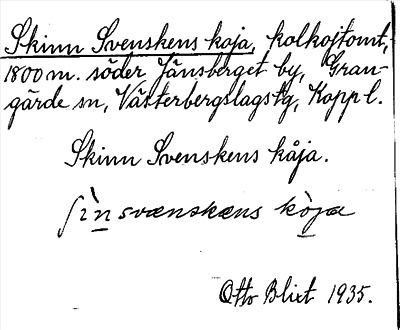 Skinn Svenskens koja, kolkojtomt,
1800 m. söder Jänsberget by, Gran-
gärde sn, Västerbergslags tg, Kopp l.
Skinn Svenskens kåja.
ʃìn svænskæns kòja
Otto Blixt 1935.